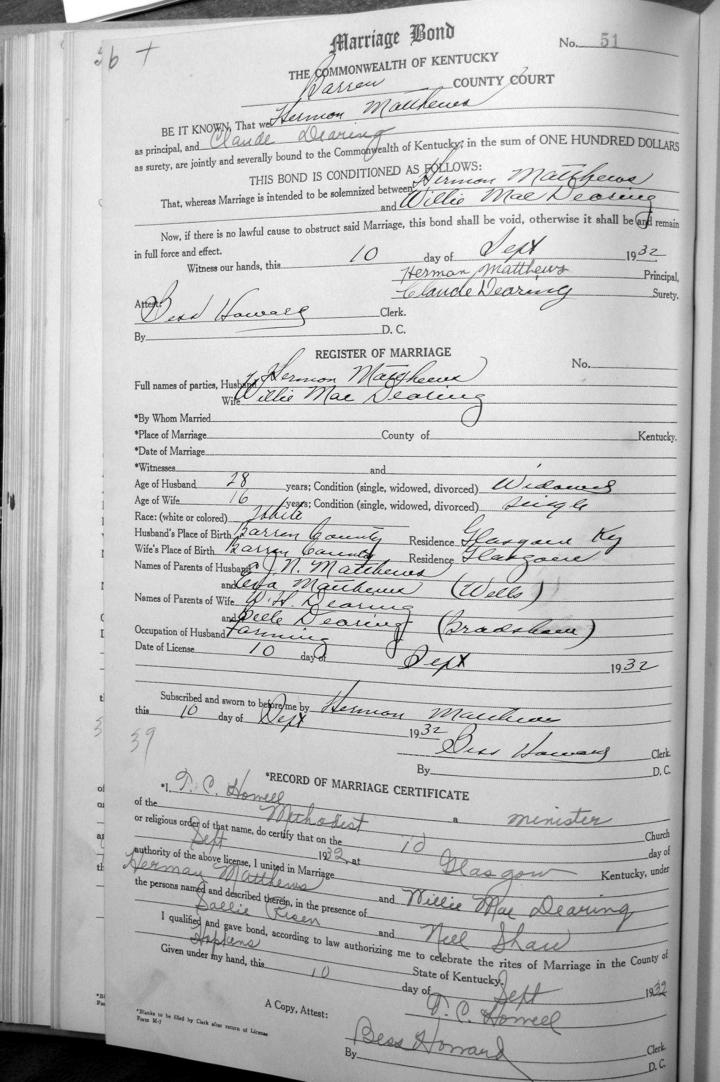 56 +
Marriage Bond
No. 51
THE COMMONWEALTH OF KENTUCKY
Barren COUNTY COURT
BE IT KNOWN, That we Hermon Matthews
as principal, and Claude Dearing
as surety, are jointly and severally bound to the Commonwealth of Kentucky, in the sum of ONE HUNDRED DOLLARS
THIS BOND IS CONDITIONED AS FOLLOWS:
That, whereas Marriage is intended to be solemnized between Hermon Matthews
and Willie Mae Dearing
Now, if there is no lawful cause to obstruct said Marriage, this bond shall be void, otherwise it shall be and remain
in full force and effect.
Witness our hands, this 10 day of Sept 1932
Herman Matthews Principal,
Claude Dearing Surety.
Attest: Bess Howard Clerk.
By D. C.
REGISTER OF MARRIAGE
No.
Full names of parties, Husband Hermon Matthews
Wife Willie Mae Dearing
*By Whom Married
*Place of Marriage County of Kentucky.
*Date of Marriage
*Witnesses and
Age of Husband 28 years; Condition (single, widowed, divorced) Widowed
Age of Wife 16 years; Condition (single, widowed, divorced) single
Race: (white or colored) White
Husband's Place of Birth Barren County Residence Glasgow Ky
Wife's Place of Birth Barren County Residence Glasgow
Names of Parents of Husband J. N. Matthews
and Matthews (Wells)
Names of Parents of Wife W. H. Dearing
and Belle Dearing (Bradshaw)
Occupation of Husband Farming
Date of License 10 day of Sept 1932
Subscribed and sworn to before me by Hermon Matthews
this 10 day of Sept 1932
39
Bess Howard Clerk
By D. C.
*RECORD OF MARRIAGE CERTIFICATE
*I, T. C. Howell a minister
of the Methodist Church
or religious order of that name, do certify that on the 10 day of
Sept 1932, at Glasgow Kentucky, under
authority of the above license, I united in Marriage
Herman Matthews and Willie Mae Dearing
the persons named and described therein, in the presence of
Sallie Risen and Nell Shaw
I qualified and gave bond, according to law authorizing me to celebrate the rites of Marriage in the County of
Hopkins State of Kentucky.
Given under my hand, this 10 day of Sept 1932
T. C. Howell
A Copy, Attest:
Bess Howard Clerk
By D. C.
*Blanks to be filled by Clerk after return of License
Form M-7